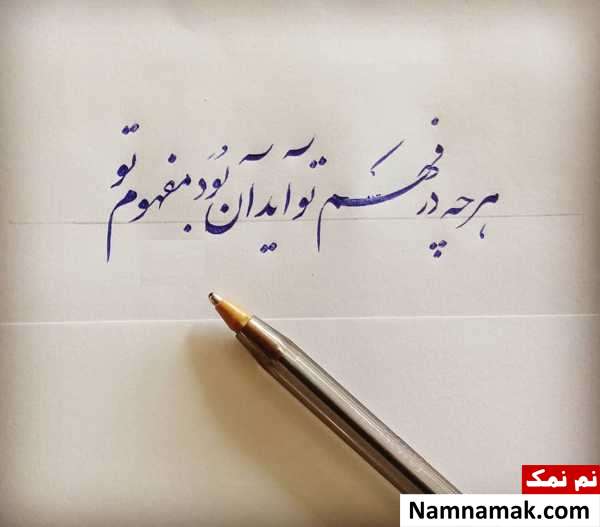 هرچه در فهم تو آید آن بُوَد مفهوم تو
نم نمک
Namnamak.com